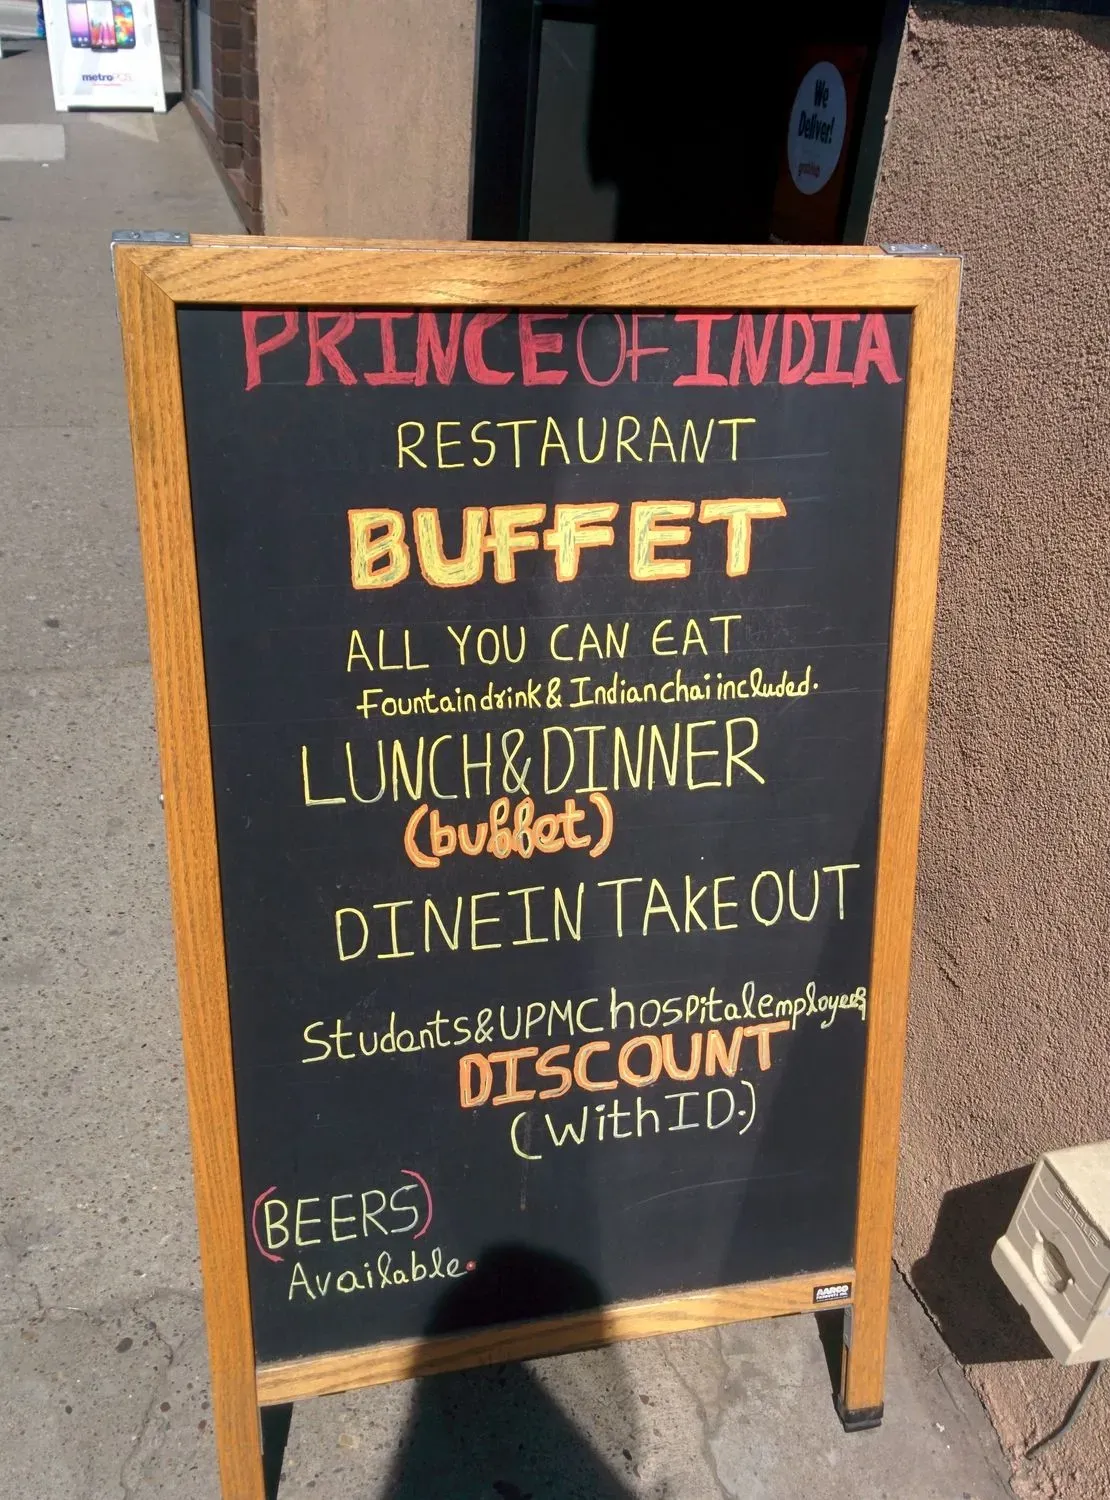 metroPCS
We
Deliver!
grubhub
PRINCE OF INDIA
RESTAURANT
BUFFET
ALL YOU CAN EAT
Fountain drink & Indian chai included.
LUNCH & DINNER
(buffet)
DINE IN TAKE OUT
Students & UPMC hospital employees
DISCOUNT
(With ID.)
(BEERS)
Available.
AARCO
PRODUCTS INC.